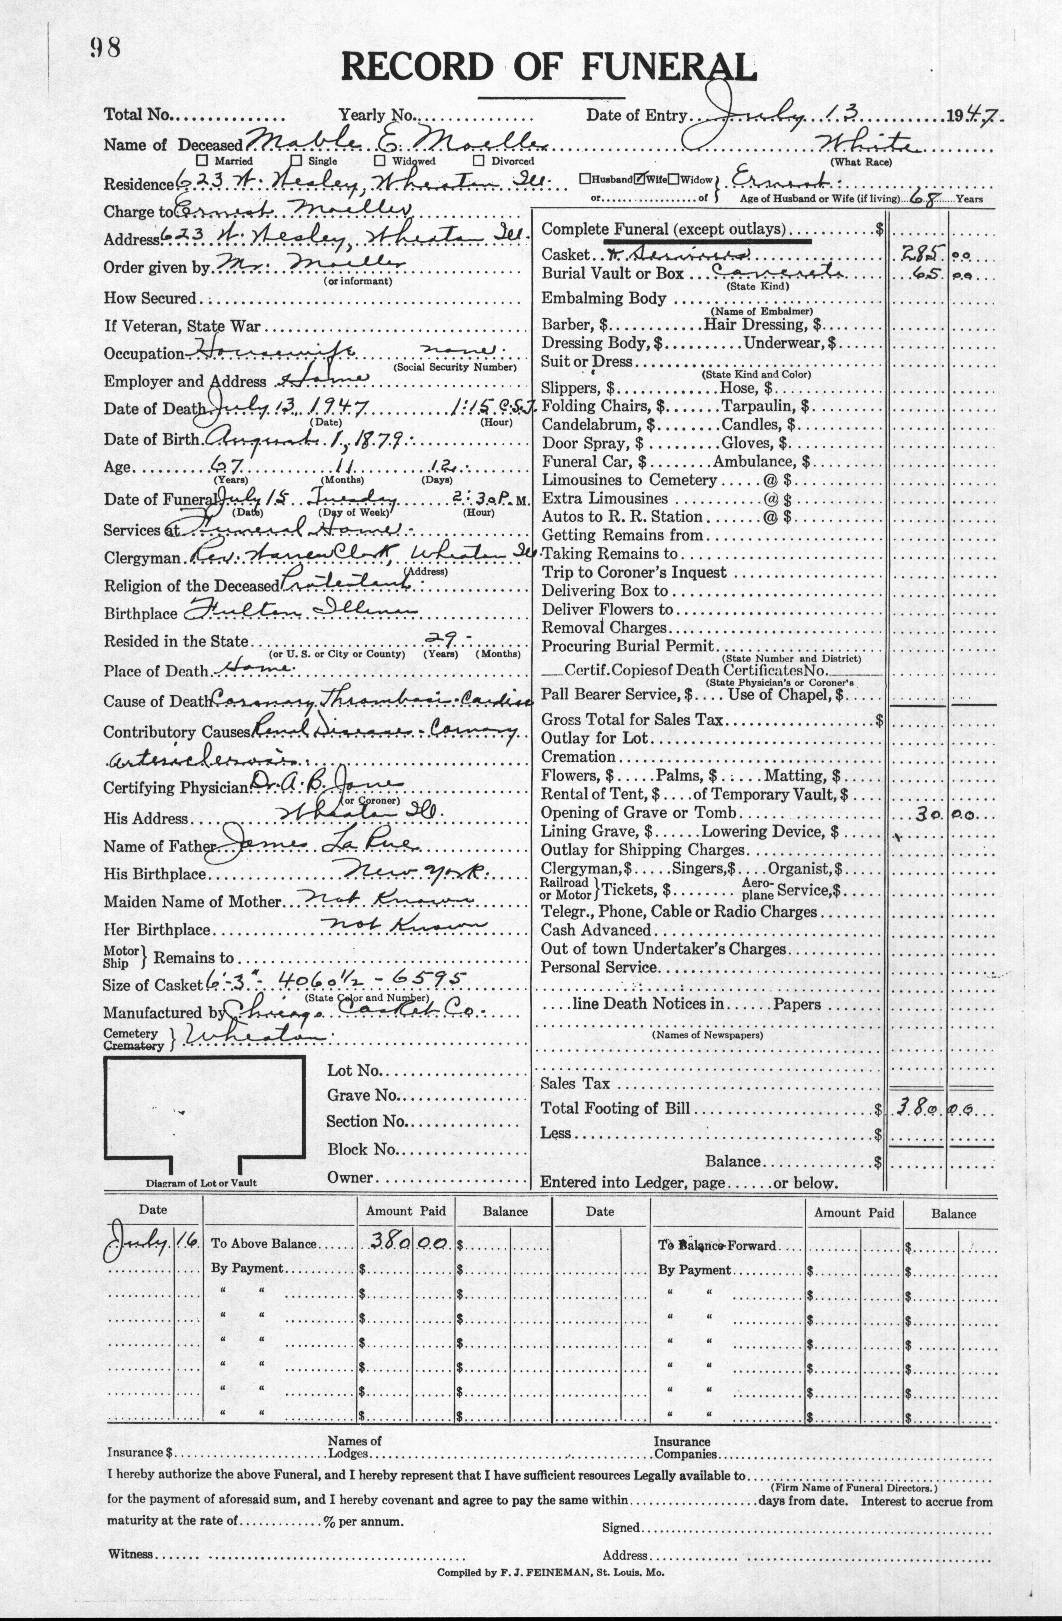 98
RECORD OF FUNERAL
Total No............... Yearly No................ Date of Entry...July...13............1947.
Name of Deceased Mable E. Moeller White
☐ Married ☐ Single ☐ Widowed ☐ Divorced (What Race)
Residence 623 W. Wesley, Wheaton Ill.
☐Husband☑Wife☐Widow} Ernest.
or...................of } Age of Husband or Wife (if living)...68.......Years
Charge to Ernest Moeller
Address 623 W. Wesley, Wheaton Ill.
Order given by Mr. Moeller
(or informant)
How Secured
If Veteran, State War
Occupation Housewife none.
(Social Security Number)
Employer and Address Home
Date of Death July 13, 1947 1:15 C.S.T.
(Date) (Hour)
Date of Birth August 1, 1879.
Age 67 11 12.
(Years) (Months) (Days)
Date of Funeral July 15 Tuesday 2:30 P.M.
(Date) (Day of Week) (Hour)
Services at Funeral Home.
Clergyman Rev. Warren Clark, Wheaton Ill.
(Address)
Religion of the Deceased Protestant.
Birthplace Fulton Illinois
Resided in the State 29.-
(or U. S. or City or County) (Years) (Months)
Place of Death Home.
Cause of Death Coronary Thrombosis - Cardiac
Contributory Causes Renal Disease - Coronary
Arteriosclerosis.
Certifying Physician Dr. A. B. Jones
(or Coroner)
His Address Wheaton Ill.
Name of Father James La Rue
His Birthplace New York.
Maiden Name of Mother Not Known
Her Birthplace not Known
Motor
Ship } Remains to
Size of Casket 6'-3"- 4060½ - 6595
(State Color and Number)
Manufactured by Chicago Casket Co.
Cemetery
Crematory } Wheaton.
Lot No.
Grave No.
Section No.
Block No.
Owner
Diagram of Lot or Vault
Complete Funeral (except outlays)...........$
Casket & Services 285 00
Burial Vault or Box ... Concrete 65 00
(State Kind)
Embalming Body
(Name of Embalmer)
Barber, $............Hair Dressing, $
Dressing Body, $..........Underwear, $
Suit or Dress
(State Kind and Color)
Slippers, $.............Hose, $
Folding Chairs, $.......Tarpaulin, $
Candelabrum, $........Candles, $
Door Spray, $.........Gloves, $
Funeral Car, $........Ambulance, $
Limousines to Cemetery.....@ $
Extra Limousines ..........@ $
Autos to R. R. Station.......@ $
Getting Remains from
Taking Remains to
Trip to Coroner's Inquest
Delivering Box to
Deliver Flowers to
Removal Charges
Procuring Burial Permit
(State Number and District)
Certif. Copies of Death Certificates No.
(State Physician's or Coroner's
Pall Bearer Service, $.... Use of Chapel, $
Gross Total for Sales Tax...................$
Outlay for Lot
Cremation
Flowers, $.....Palms, $......Matting, $
Rental of Tent, $....of Temporary Vault, $
Opening of Grave or Tomb 30 00
Lining Grave, $......Lowering Device, $
Outlay for Shipping Charges
Clergyman, $.....Singers, $....Organist, $
Railroad
or Motor } Tickets, $........ Aero-
plane Service, $
Telegr., Phone, Cable or Radio Charges
Cash Advanced
Out of town Undertaker's Charges
Personal Service
....line Death Notices in......Papers
(Names of Newspapers)
Sales Tax
Total Footing of Bill.......................$ 380 00
Less.......................................$
Balance..............$
Entered into Ledger, page......or below.
Date Amount Paid Balance Date Amount Paid Balance
July 16 To Above Balance...... 380 00 $ To Balance Forward.... $
By Payment..........$ $ By Payment..........$ $
" " $ $ " " $ $
" " $ $ " " $ $
" " $ $ " " $ $
" " $ $ " " $ $
" " $ $ " " $ $
" " $ $ " " $ $
Insurance $ Names of
Lodges Insurance
Companies
I hereby authorize the above Funeral, and I hereby represent that I have sufficient resources Legally available to
(Firm Name of Funeral Directors.)
for the payment of aforesaid sum, and I hereby covenant and agree to pay the same within...................days from date. Interest to accrue from
maturity at the rate of.............% per annum.
Signed
Witness Address
Compiled by F. J. FEINEMAN, St. Louis, Mo.